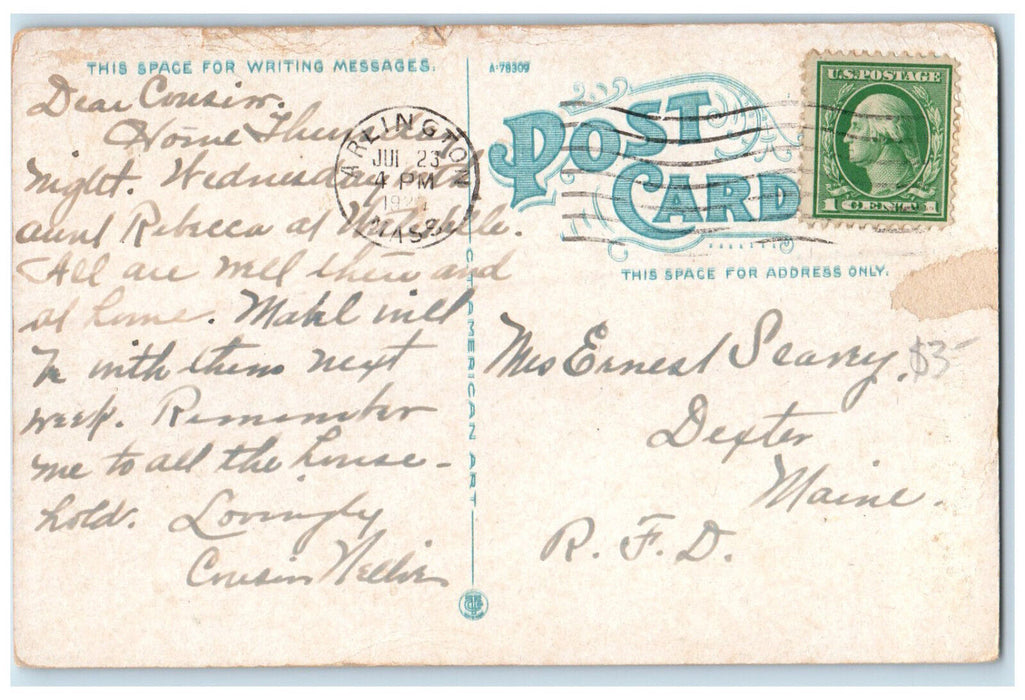 THIS SPACE FOR WRITING MESSAGES.
Dear Cousin.
Home
night. Wednesday
aunt Rebecca at
All are well there and
at home. Mabel will
be with them next
week. Remember
me to all the house-
hold. Lovingly
Cousin Nellie
ARLINGTON
JUL 23
4 PM
MASS
C.T. AMERICAN ART
A-78309
POST
CARD
U.S. POSTAGE
1 CENT 1
THIS SPACE FOR ADDRESS ONLY.
Mrs Ernest Seavey.
$3-
Dexter
Maine.
R. F. D.